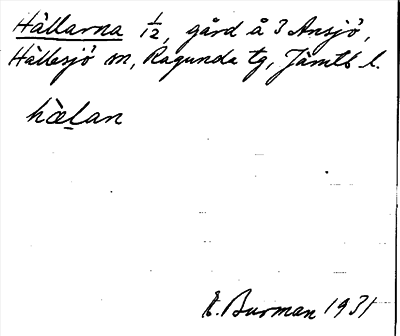 Hällarna 1/12, gård å 3 Ansjö,
Hällesjö sn, Ragunda tg, Jämtl l.
hæ̀l̲an
E. Burman 1931